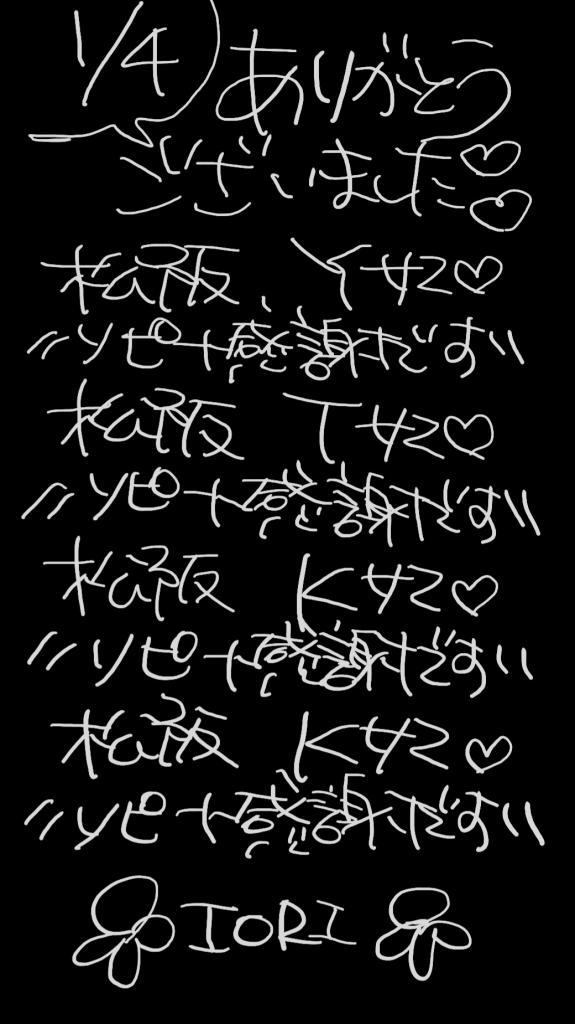 1/4 ありがとう
ございました♡♡
松阪 Y サマ♡
〃リピート感謝だす〃
松阪 T サマ♡
〃リピート感謝だす〃
松阪 K サマ♡
〃リピート感謝だす〃
松阪 K サマ♡
〃リピート感謝だす〃
IORI